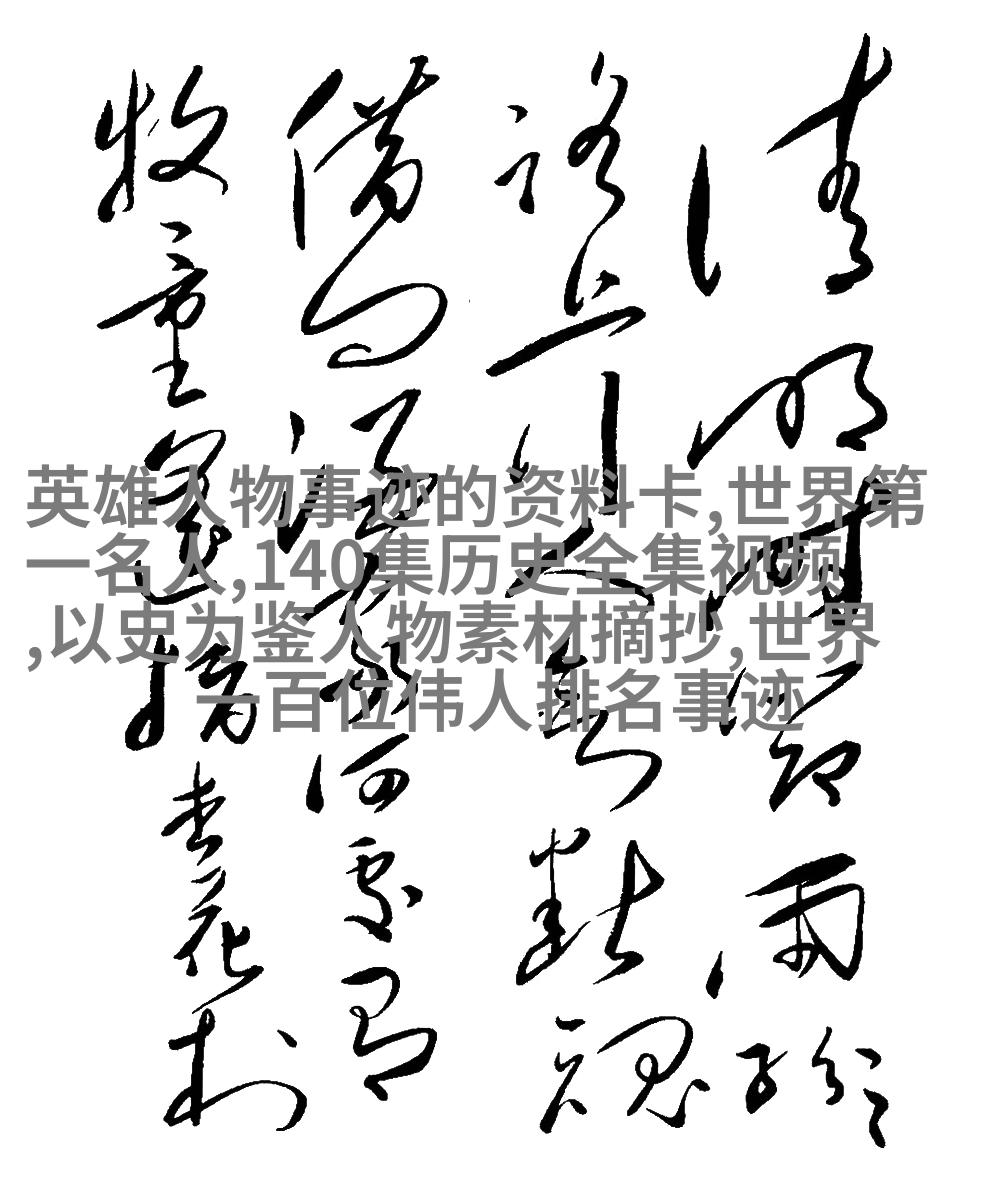 清明时节雨纷纷
路上行人欲断魂
借问酒家何处有
牧童遥指杏花村
英雄人物事迹的资料卡,世界第
一名人,140集历史全集视频
,以史为鉴人物素材摘抄,世界
一百位伟人排名事迹